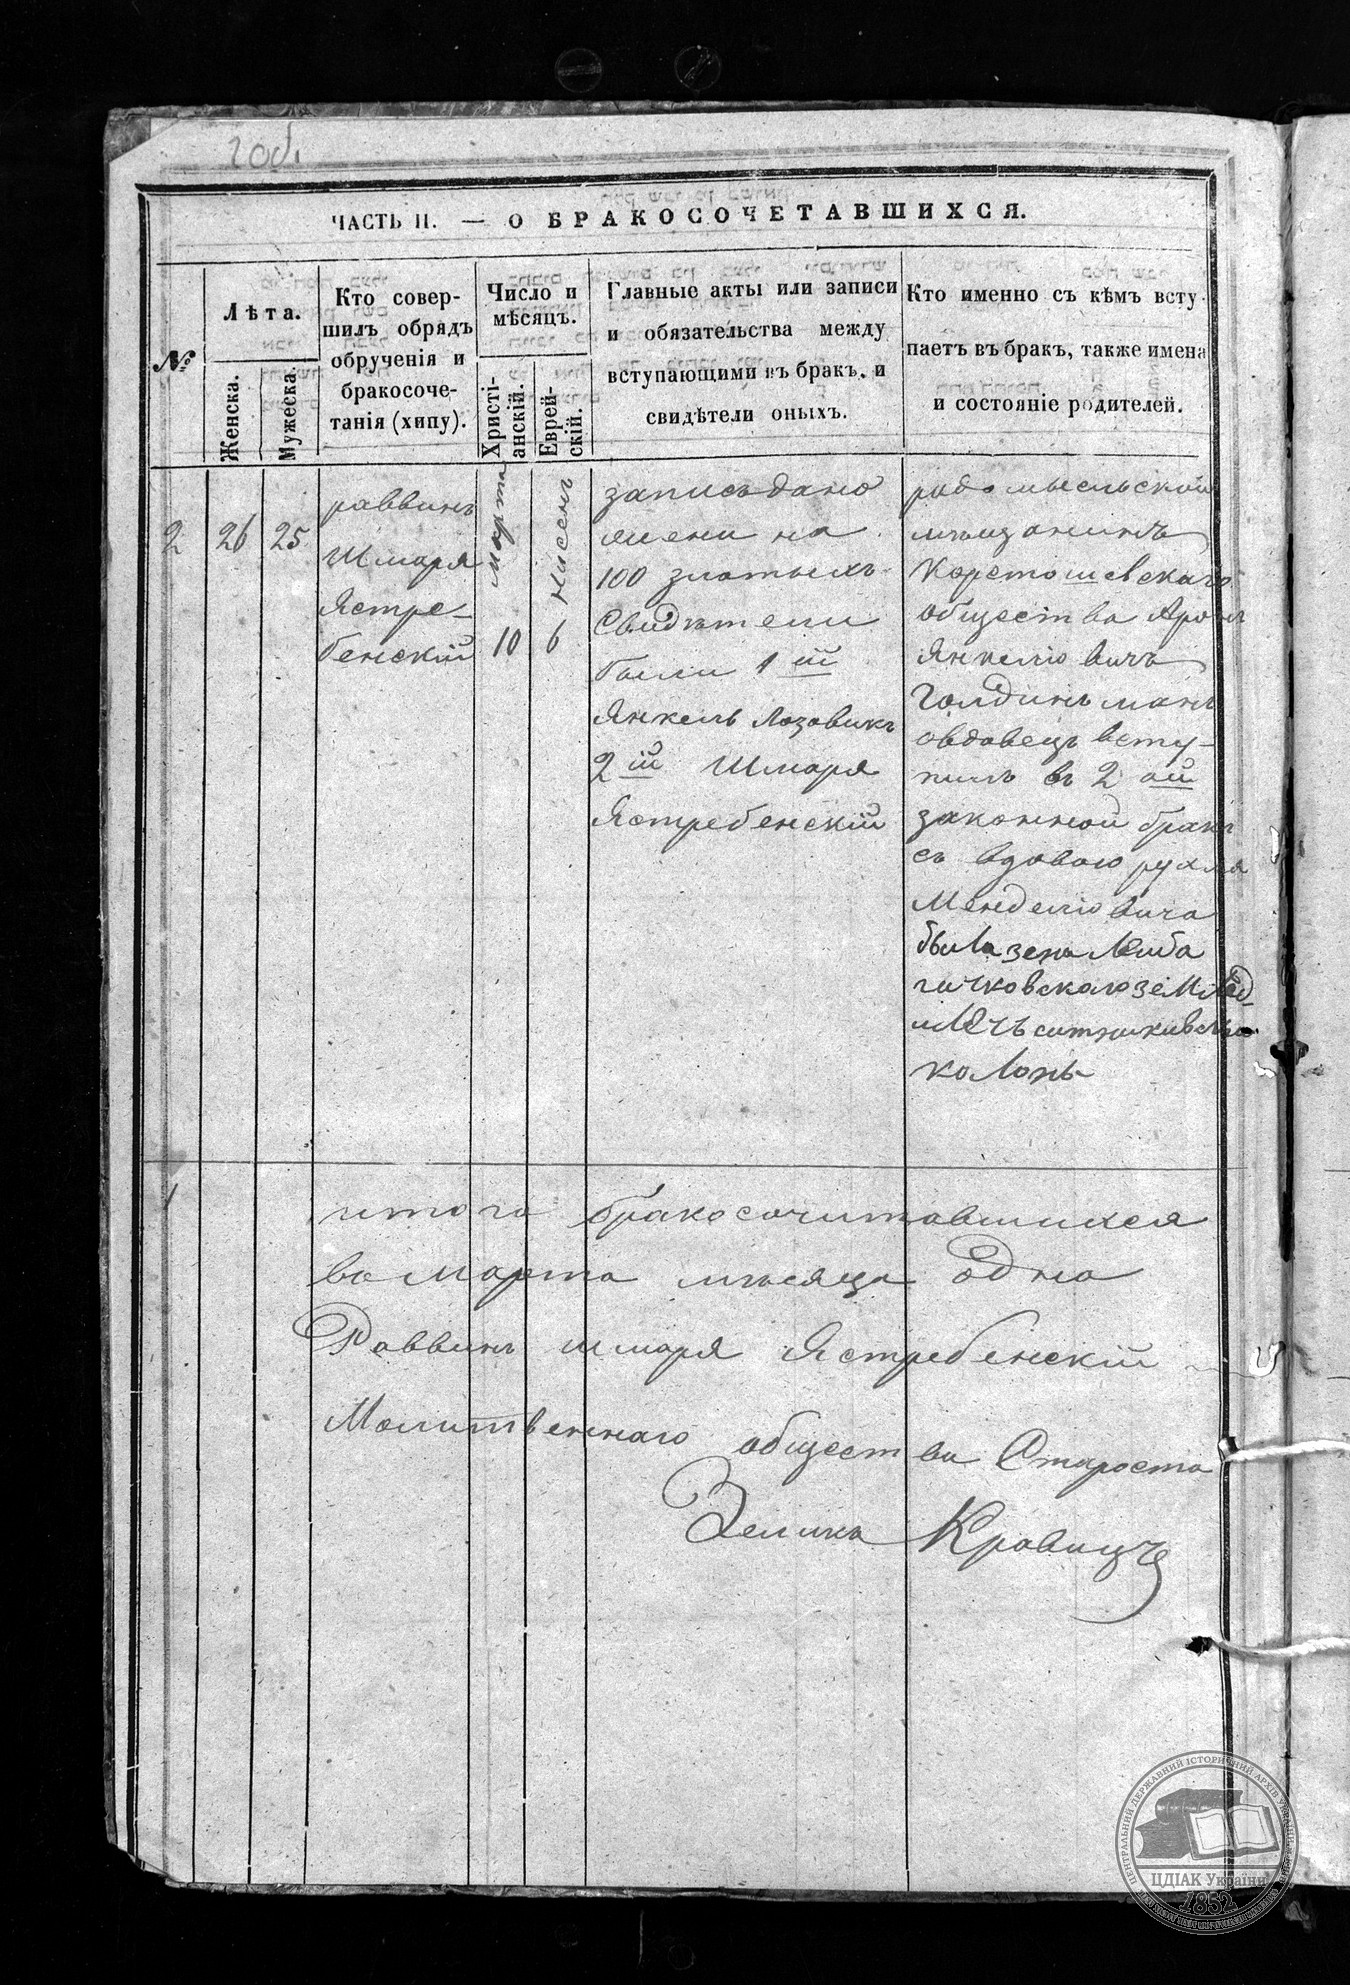 10об.
ЧАСТЬ II. — О БРАКОСОЧЕТАВШИХСЯ.
№
Лѣта.
Женска.
Мужеска.
Кто совер-
шилъ обрядъ
обрученія и
бракосоче-
танія (хипу).
Число и
мѣсяцъ.
Христі-
анскій.
Еврей-
скій.
Главные акты или записи
и обязательства между
вступающими въ бракъ, и
свидѣтели оныхъ.
Кто именно съ кѣмъ всту-
паетъ въ бракъ, также имена
и состояніе родителей.
2
26
25
раввинъ
Шмаря
Ястре-
бенскій
марта
10
Нисенъ
6
запись дано
жени на
100 златыхъ
Свидѣтели
были 1 ій
Янкель Лозовикъ
2 ій Шмаря
Ястребенскій
радомысльской
мѣщанинъ
Коростошевскаго
общества Аронъ
Янкеліовичъ
Голдинъманъ
овдовецъ всту-
пилъ въ 2 ой
законной бракъ
съ вдовою рухля
Менделіовича
была зена Лейба
колонь
1
итого бракосочитавшихся
во марта мѣсяца одна
Раввинъ шмаря Ястребенскій
Молитвеннаго общества Староста
Зелика Кравицъ
ЦЕНТРАЛЬНИЙ ДЕРЖАВНИЙ ІСТОРИЧНИЙ АРХІВ УКРАЇНИ
ЦДІАК України
1852